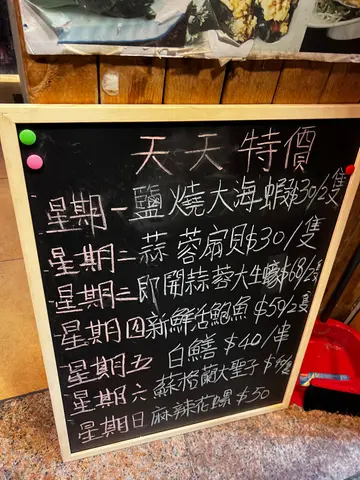 天天特價
星期一鹽燒大海蝦$30/2隻
星期二蒜蓉扇貝$30/隻
星期三即開蒜蓉大生蠔$68/2隻
星期四新鮮活鮑魚$50/2隻
星期五 白鱔$40/串
星期六 蘇格蘭大聖子
星期日麻辣花螺$50